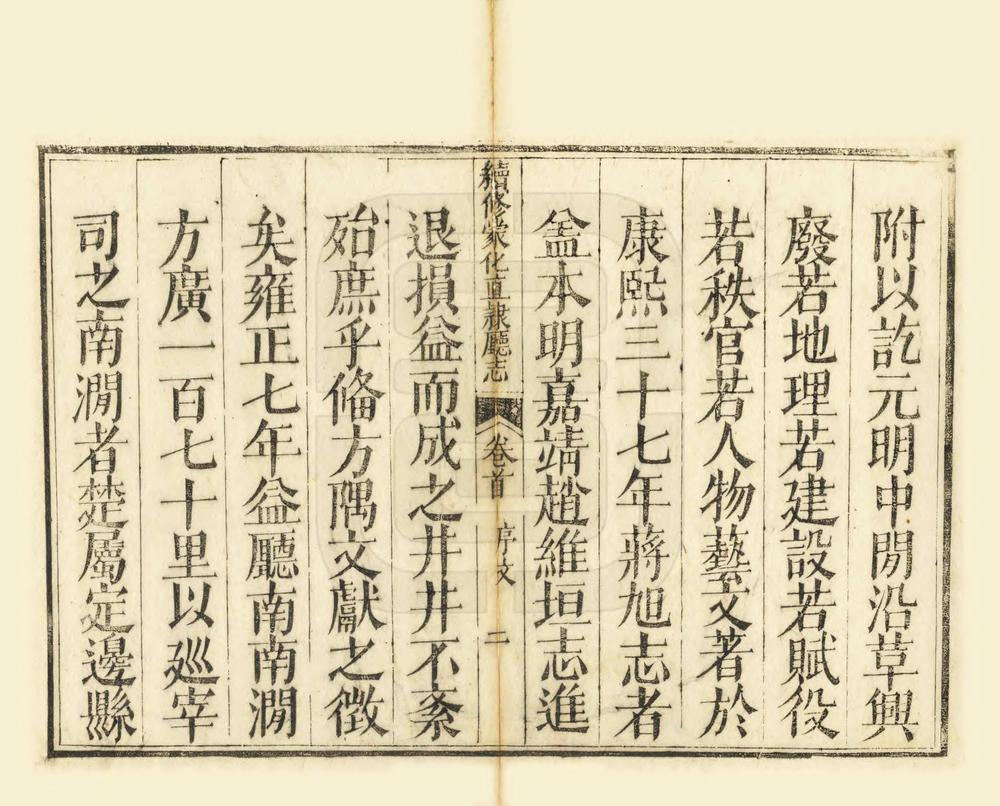 附以訖元明中閒沿革興
廢若地理若建設若賦役
若秩官若人物藝文著於
康熙三十七年蔣旭志者
葢本明嘉靖趙維垣志進
續修蒙化直隸廳志 卷首 序文 二
退損益而成之井井不紊
殆庶乎備方隅文獻之徵
矣雍正七年益廳南南澗
方廣一百七十里以巡宰
司之南澗者楚屬定邊縣